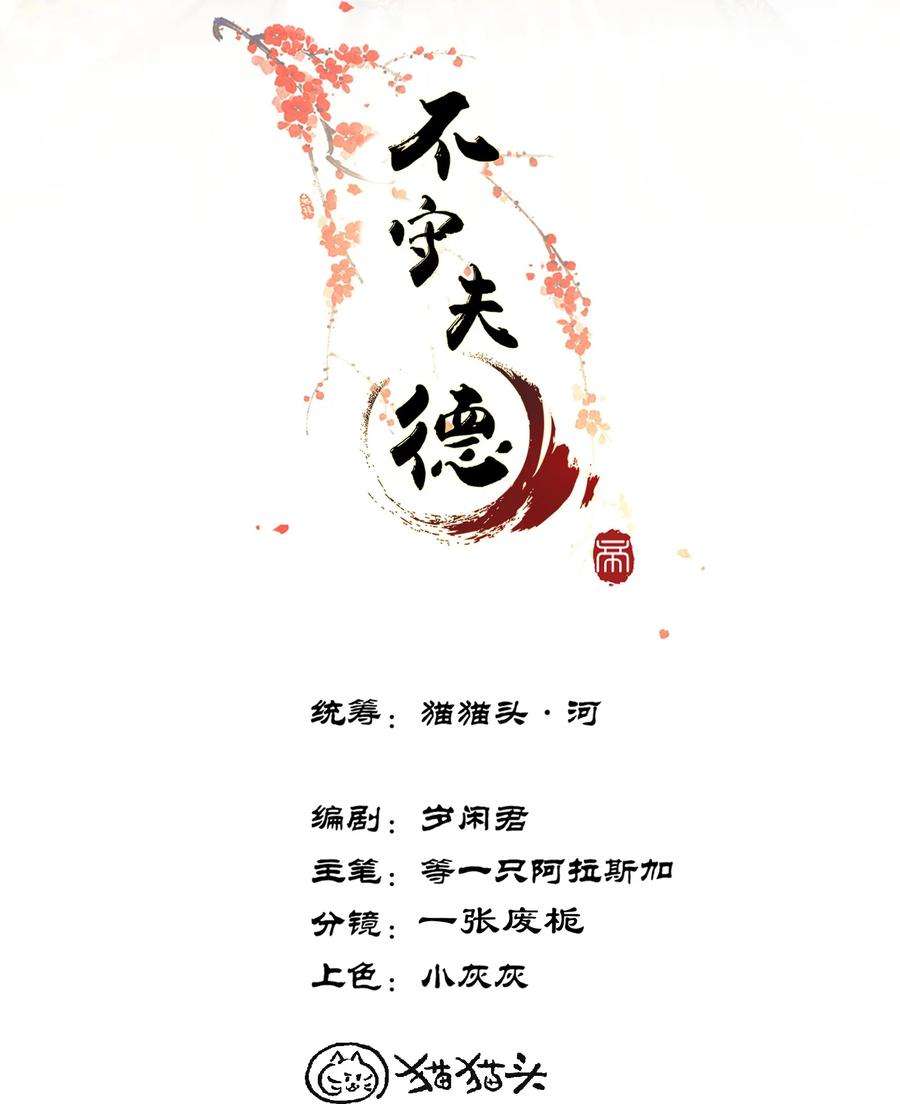 不守夫德
帝
统筹：猫猫头·河
编剧：岁闲君
主笔：等一只阿拉斯加
分镜：一张废栀
上色：小灰灰
猫猫头